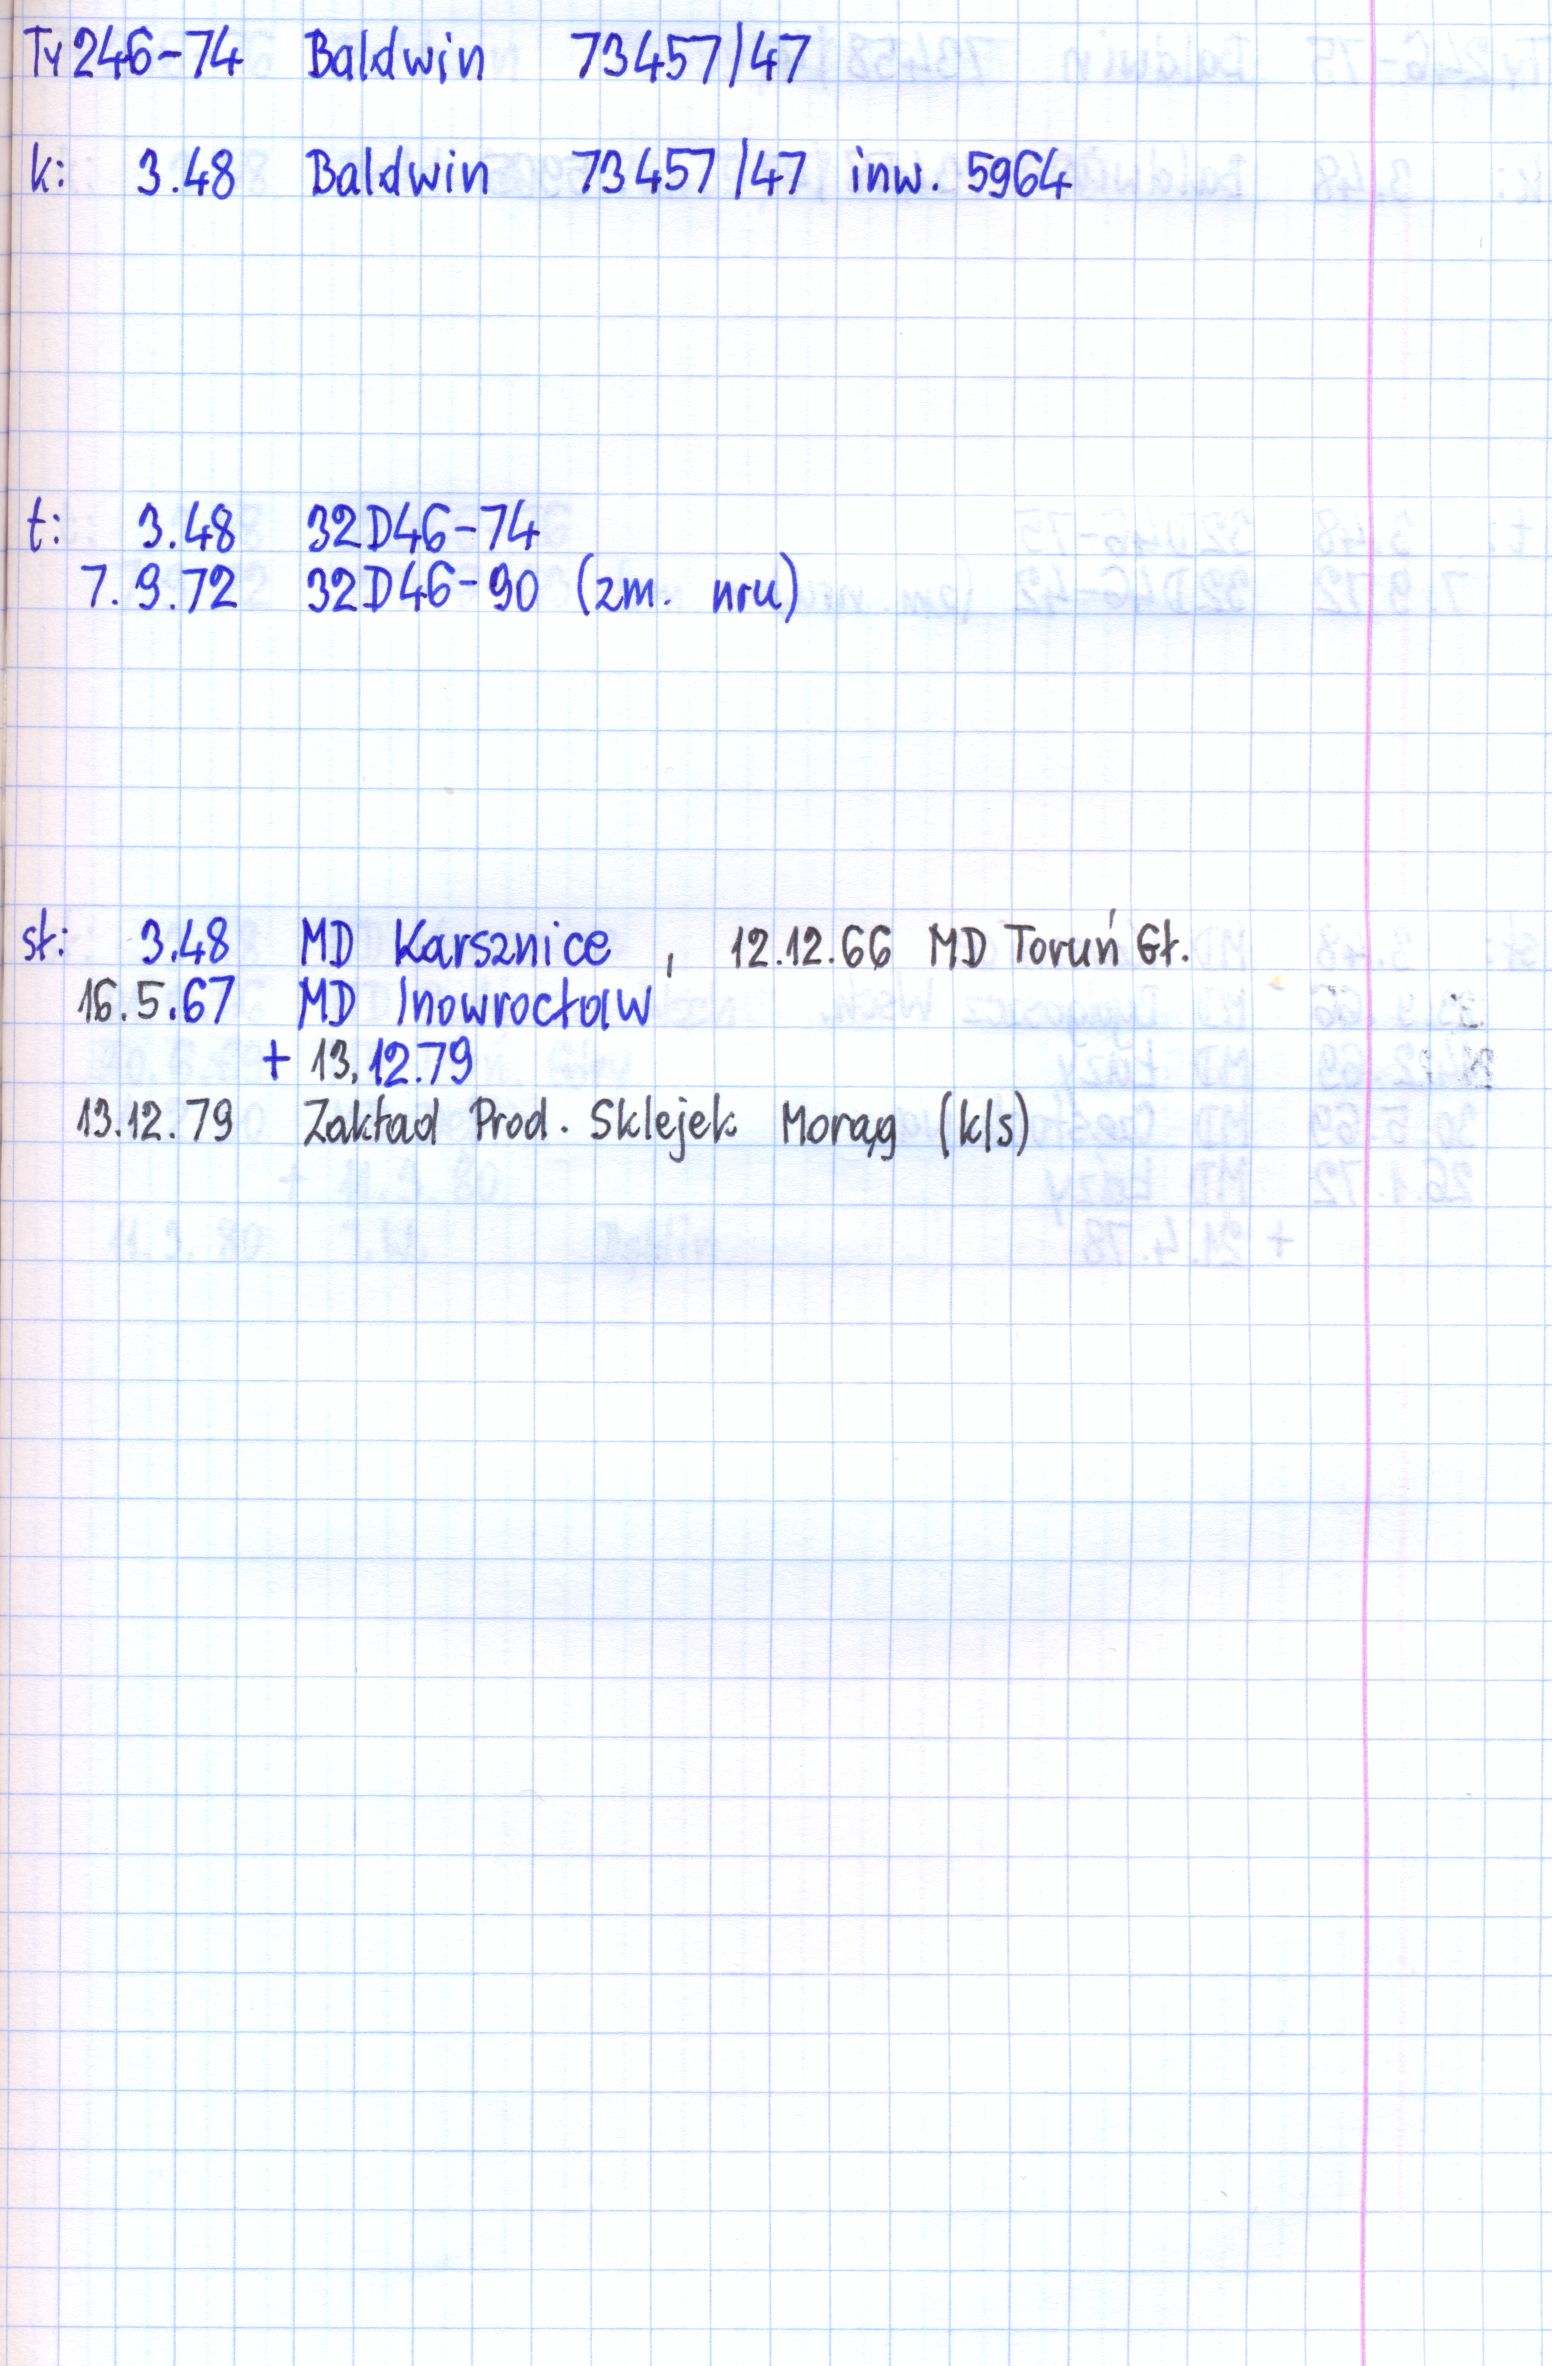 Ty246-74 Baldwin 73457/47
k: 3.48 Baldwin 73457/47 inw. 5964
t: 3.48 32D46-74
7.9.72 32D46-90 (zm. nru)
st: 3.48 MD Karsznice , 12.12.66 MD Toruń Gł.
16.5.67 MD Inowrocław
+ 13.12.79
13.12.79 Zakład Prod. Sklejek Morąg (k/s)